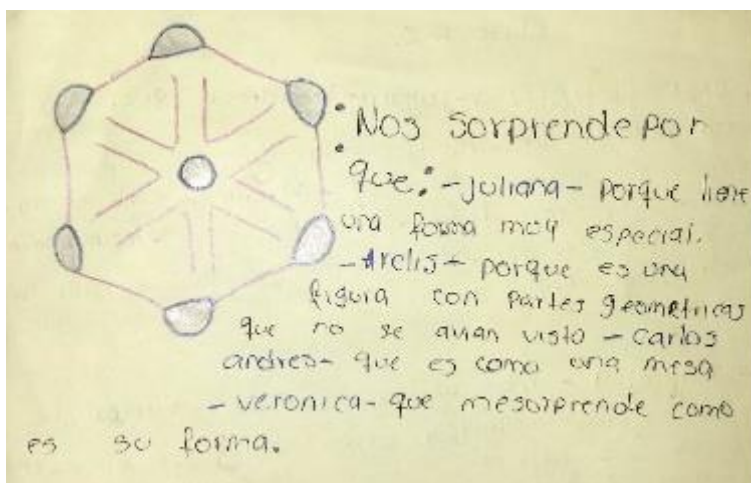 Nos sorprende por
que: - juliana - porque tiene
una forma muy especial.
- Arelis - porque es una
figura con partes geometricas
que no se avian visto - carlos
andres - que es como una mesa
- veronica - que mesorprende como
es su forma.